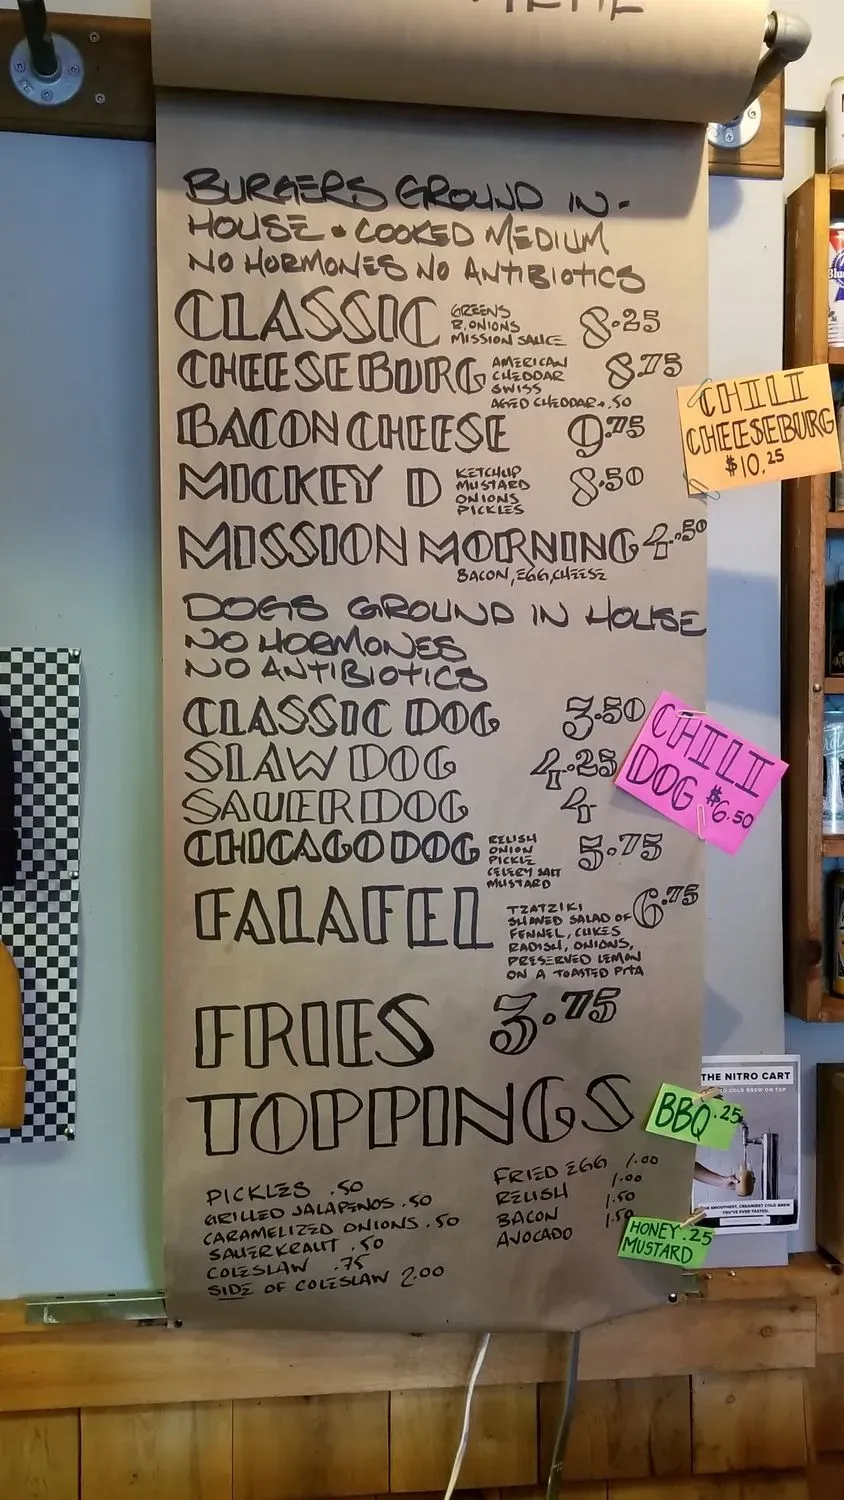 BURGERS GROUND IN-
HOUSE • COOKED MEDIUM
NO HORMONES NO ANTIBIOTICS
CLASSIC GREENS 8.25
R.ONIONS
MISSION SAUCE
CHEESEBURG AMERICAN 8.75
CHEDDAR
SWISS
AGED CHEDDAR+.50
CHILI
CHEESEBURG
$10.25
BACON CHEESE 9.75
MICKEY D KETCHUP 8.50
MUSTARD
ONIONS
PICKLES
MISSION MORNING 4.50
BACON, EGG, CHEESE
DOGS GROUND IN HOUSE
NO HORMONES
NO ANTIBIOTICS
CLASSIC DOG 3.50
SLAW DOG 4.25
SAUER DOG 4
CHILI
DOG $6.50
CHICAGO DOG RELISH 5.75
ONION
PICKLE
CELERY SALT
MUSTARD
FALAFEL 6.75
TZATZIKI
SHAVED SALAD OF
FENNEL, CUKES
RADISH, ONIONS,
PRESERVED LEMON
ON A TOASTED PITA
FRIES 3.75
TOPPINGS
BBQ .25
PICKLES .50
GRILLED JALAPENOS .50
CARAMELIZED ONIONS .50
SAUERKRAUT .50
COLESLAW .75
SIDE OF COLESLAW 2.00
FRIED EGG 1.00
RELISH 1.00
BACON 1.50
AVOCADO 1.50
HONEY .25
MUSTARD
THE NITRO CART
COLD BREW ON TAP
SMOOTHEST, CREAMIEST COLD BREW
YOU'VE EVER TASTED.